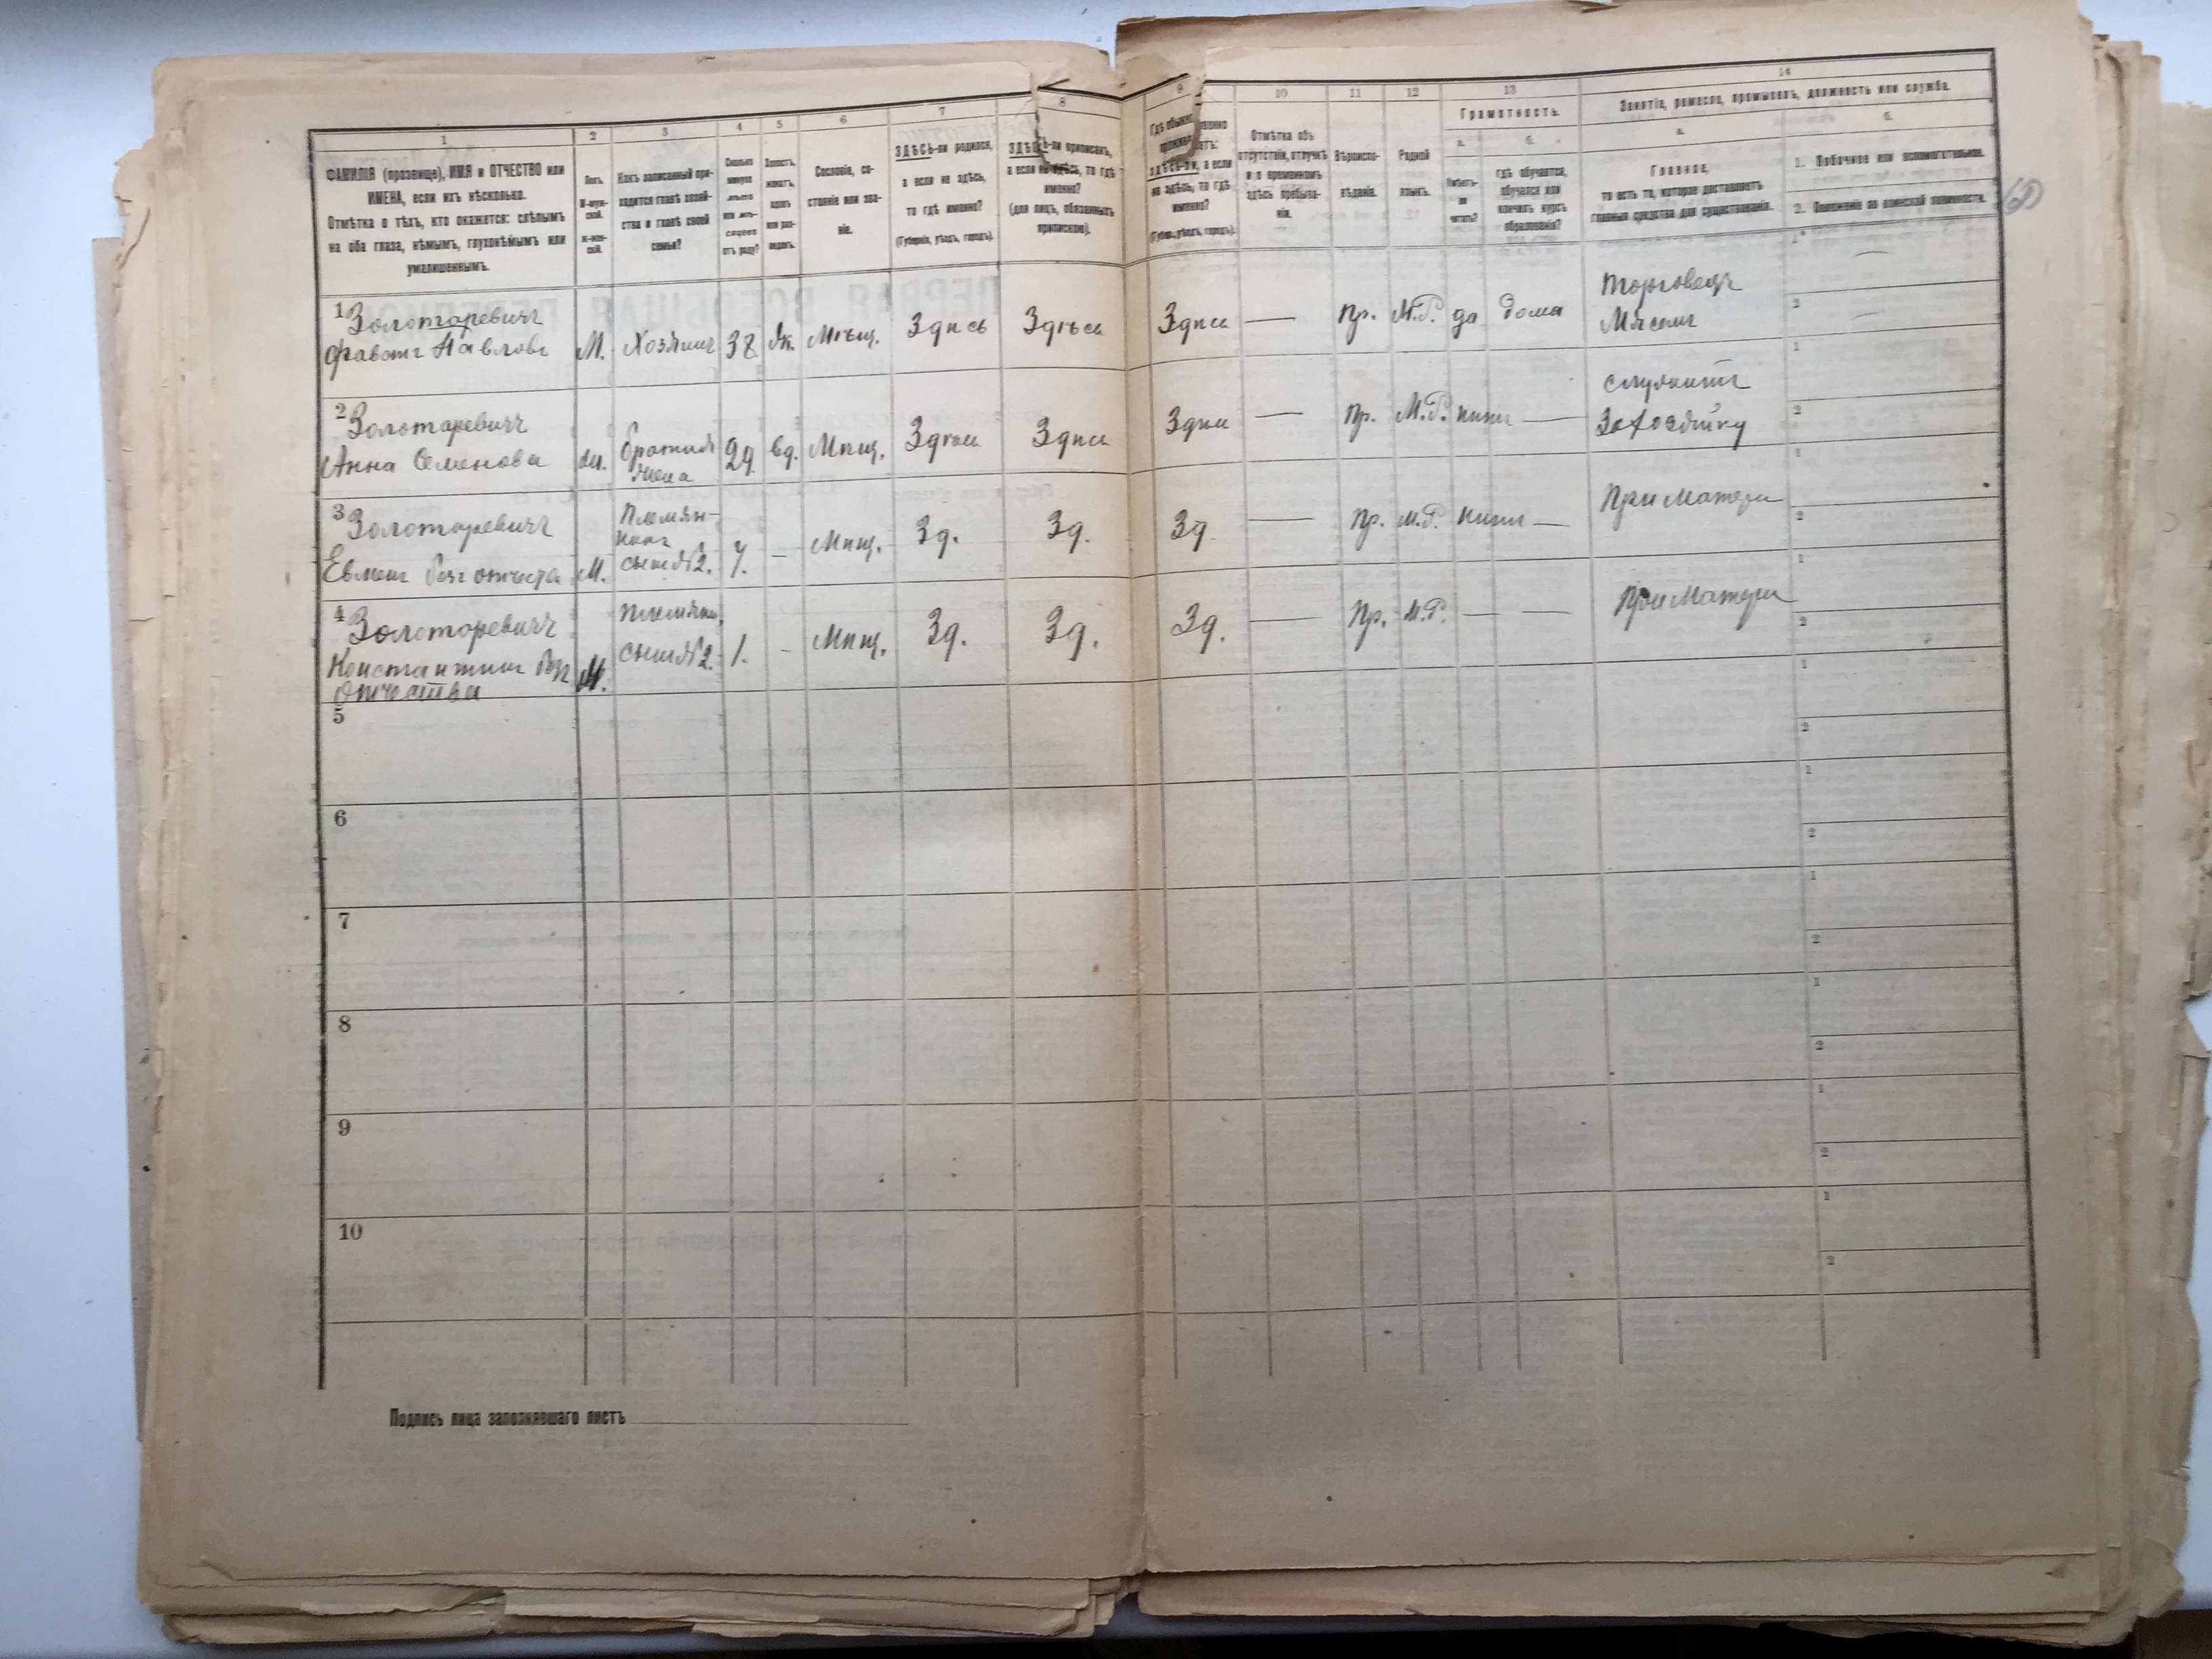 1 2 3 4 5 6 7 8 9 10 11 12 13 14
ФАМИЛІЯ (прозвище), ИМЯ и ОТЧЕСТВО или
ИМЕНА, если ихъ нѣсколько.
Отмѣтка о тѣхъ, кто окажется: слѣпымъ
на оба глаза, нѣмымъ, глухонѣмымъ или
умалишеннымъ.
Полъ.
М-муж-
ской.
ж-жен-
скій.
Какъ записанный при-
ходится главѣ хозяй-
ства и главѣ своей
семьи?
Сколько
минуло
лѣтъ
или мѣ-
сяцевъ
отъ роду?
Холостъ,
женатъ,
вдовъ
или раз-
веденъ.
Сословіе, со-
стояніе или зва-
ніе.
ЗДѢСЬ-ли родился,
а если не здѣсь,
то гдѣ именно?
(Губернія, уѣздъ, городъ).
приписанъ,
а если не здѣсь, то гдѣ
именно?
(для лицъ, обязанныхъ
припискою).
Гдѣ обыкно
ЗДѢСЬ-ли, а если
не здѣсь, то гдѣ
именно?
(Губер., уѣздъ, городъ).
Отмѣтка объ
отсутствіи, отлучкѣ
и о временномъ
здѣсь пребыва-
ніи.
Вѣроиспо-
вѣданіе.
Родной
языкъ.
Грамотность.
а. б.
Умѣетъ-
ли
читать?
гдѣ обучается,
обучался или
кончилъ курсъ
образованія?
Занятіе, ремесло, промыселъ, должность или служба.
а. б.
Главное,
то есть то, которое доставляетъ
главныя средства для существованія.
1. Побочное или вспомогательное.
2. Положеніе по воинской повинности.
1 Золотаревичъ
Павловъ М. Хозяинъ 38 Мѣщ. Здѣсь Здѣсь Здѣсь — Пр. М.Р. да дома Торговецъ
Мясомъ
2 Золотаревичъ
Анна Семенова братняя
жена 29 вд. Мѣщ. Здѣсь Здѣсь Здѣсь — Пр. М.Р. —
3 Золотаревичъ
безъ отчества М. Племян-
никъ
сынъ №2. 7. – Мѣщ. Зд. Зд. Зд. — Пр. М.Р. — При Матери
4 Золотаревичъ
Константинъ безъ
отчества М. Племян.
сынъ №2. 1. – Мѣщ. Зд. Зд. Зд. — Пр. М.Р. — — При Матери
5
6
7
8
9
10
Подпись лица заполнявшаго листъ